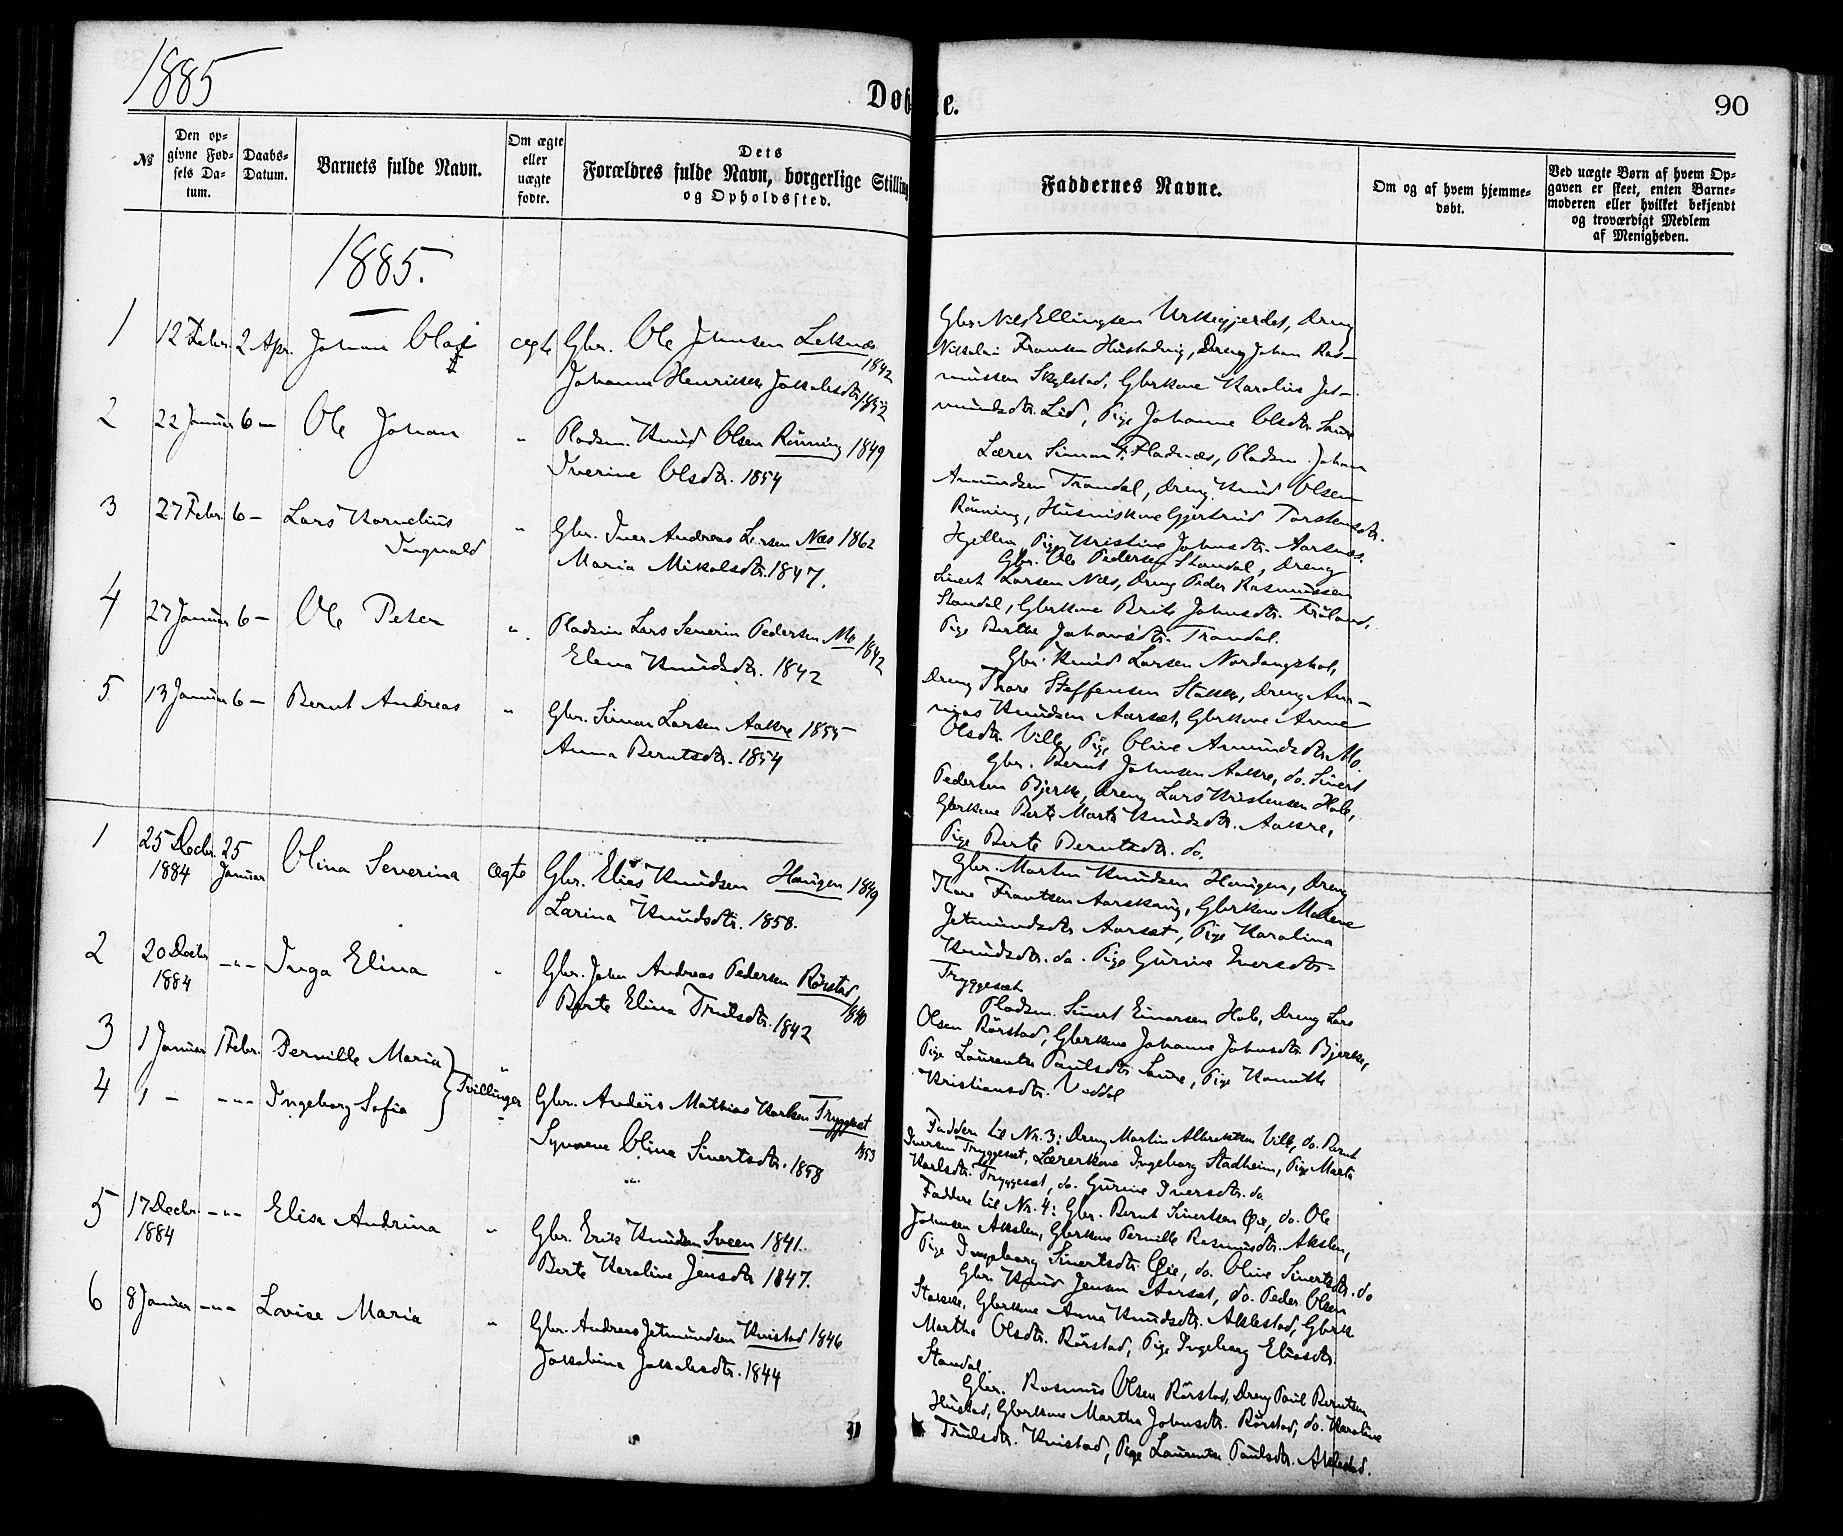 1885
Døbte.
90
№
Den op-
givne Fød-
sels Da-
tum.
Daabs-
Datum.
Barnets fulde Navn.
Om ægte
eller
uægte
fødte.
Dets
Forældres fulde Navn, borgerlige Stilling
og Opholdssted.
Faddernes Navne.
Om og af hvem hjemme-
døbt.
Ved uægte Børn af hvem Op-
gaven er skeet, enten Barne-
moderen eller hvilket bekjendt
og troværdigt Medlem
af Menigheden.
1885.
1 12 Febr. 2 Apr. Johan Olai ægte Gbr. Ole Johnsen Leknæs 1842
Johanne Henrikke Jakobsdtr. 1852
Gbr. Nils Ellingsen Urkegjerdet, Dreng
Nikolai Fransen Hustadvig, Dreng Johan Ras-
mussen Skylstad, Gbrkone Karolius Jet-
mundsdtr. Lid, Pige Johanne Olsdtr. Saure
2 22 Januar 6 — Ole Johan " Pladsm. Knud Olsen Rønning 1849
Iverine Olsdtr. 1854
Lærer Simon F. Fladnæs, Pladsm. Johan
Amundsen Trandal, Dreng Knud Olsen
Rønning, Husmskone Gjertrud Torstensdtr.
Hjellen, Pige Kristine Johnsdtr. Aarsnæs.
3 27 Febr. 6 — Lars Kornelius
Ingvald " Gbr. Iver Andreas Larsen Næs 1862
Maria Mikalsdtr. 1847.
Gbr. Ole Pedersen Standal, Dreng
Sivert Larsen Næs, Dreng Peder Rasmussen
Standal, Gbrkone Brite Johnsdtr. Frøland,
Pige Berthe Johansdtr. Trandal.
4 27 Januar 6 — Ole Peter " Pladsm. Lars Severin Pedersen Mo 1842
Elena Knudsdtr. 1842
Gbr. Knud Larsen Nordangshol,
Dreng Thore Steffensen Stokke, Dreng An-
nias Knudsen Aarsæt, Gbrkone Anne
Olsdtr. Ville, Pige Oline Amundsdtr. Mo.
5 13 Januar 6 — Bernt Andreas " Gbr. Simon Larsen Aakre 1855
Anna Berntsdtr. 1854
Gbr. Bernt Johnsen Aakre, do. Sivert
Pedersen Bjerke, Dreng Lars Kristensen Hole,
Gbrkone Berte Marte Knudsdtr. Aakre,
Pige Berte Berntsdtr. do.
1 25 Decbr. 1884 25 Januar Olina Severina ægte Gbr. Elias Knudsen Haugen 1849
Larina Knudsdtr. 1858.
Gbr. Martin Knudsen Haugen, Dreng
Thore Frantsen Aarskaug, Gbrkone Malene
Jetmundsdtr. Aarsæt, Pige Karolina
Knudsdtr. do. Pige Gurine Iversdtr.
Tryggesæt.
2 20 Decbr. 1884 — " — Inga Elina " Gbr. John Andreas Pedersen Rørstad 1840
Berte Elina Trulsdtr. 1842
Pladsm. Sivert Einarsen Hole, Dreng Lars
Olsen Rørstad, Gbrkone Johanne Johnsdtr. Bjerke,
Pige Laurentse Paulsdtr. Saure, Pige Kanutte
Kristiansdtr. Veddal
3 1 Januar 1 Febr. Pernille Maria
4 1 — — " — Ingeborg Sofia Tvillinger " Gbr. Anders Mathias Karlsen Tryggesæt 1853
Synneve Olina Sivertsdtr. 1858
Faddere til Nr. 3: Dreng Martin Albrektsen Ville, do. Bernt
Iversen Tryggesæt, Lærerkone Ingeborg Stadheim, Pige Marte
Karlsdtr. Tryggesæt, do. Gurine Iversdtr. do
Faddere til Nr. 4: Gbr. Bernt Sivertsen Øie, do. Ole
Johnsen Akslen, Gbrkone Pernille Rasmusdtr. Akslen,
Pige Ingeborg Sivertsdtr. Øie, do. Oline Sivertsdtr. do
5 17 Decbr. 1884 — " — Elisa Andrina " Gbr. Erik Knudsen Sveen 1841.
Berte Karoline Jensdtr 1847.
Gbr. Knud Jensen Aarsæt, do. Peder Olsen
Stokke, Gbrkone Anna Knudsdtr. Aklestad, Gbrk.
Martha Olsdtr. Rørstad, Pige Ingeborg Eliasdtr.
Standal.
6 8 Januar — " — Lovise Maria " Gbr. Andreas Jetmundsen Kvistad 1846
Jakobina Jakobsdtr. 1844
Gbr. Rasmus Olsen Rørstad, Dreng Paul Berntsen
Hustad, Gbrkone Martha Johnsdtr. Rørstad, do. Karoline
Trulsdtr. Kvistad, Pige Laurentse Paulsdtr. Aklestad.